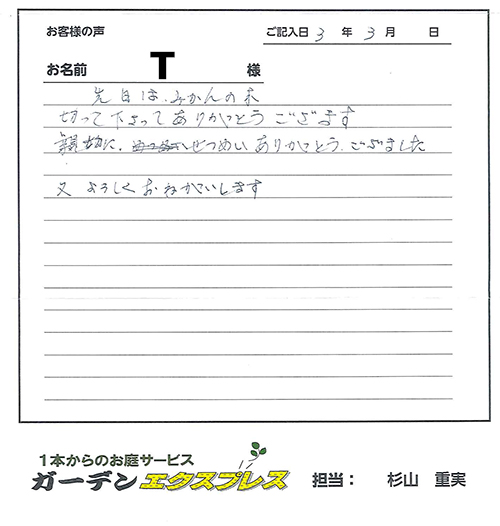 お客様の声
ご記入日 3 年 3 月 日
お名前 T 様
先日は、みかんの木
切って下さってありがとうございます
親切に、せつめいありがとう、ございました
又よろしくおねがいします
1本からのお庭サービス
ガーデンエクスプレス
担当: 杉山 重実